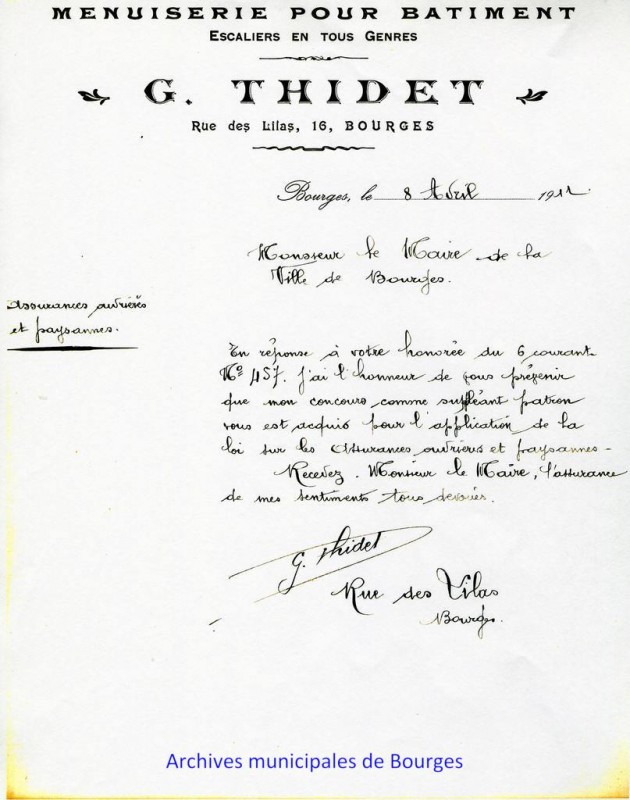 MENUISERIE POUR BATIMENT
ESCALIERS EN TOUS GENRES
G. THIDET
Rue des Lilas, 16, BOURGES
Bourges, le 8 Avril 1911
Monsieur le Maire de la
Ville de Bourges.
Assurances ouvrières
et paysannes.
En réponse à votre honorée du 6 courant
No 457. J'ai l'honneur de vous prévenir
que mon concours comme suppléant patron
vous est acquis pour l'application de la
loi sur les Assurances ouvrières et paysannes -
Recevez. Monsieur le Maire, l'assurance
de mes sentiments tous dévoués.
G. Thidet
Rue des Lilas
Bourges.
Archives municipales de Bourges